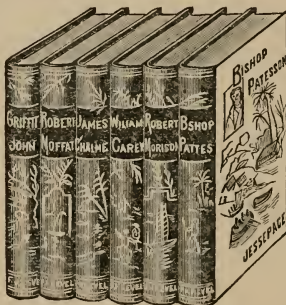 GRIFFIT
JOHN
ROBERT
MOFFAT
JAMES
CHALME
WILIAM
CAREY
ROBERT
MORISON
BSHOP
PATTES
BISHOP
PATESSON
JESSEPAGE